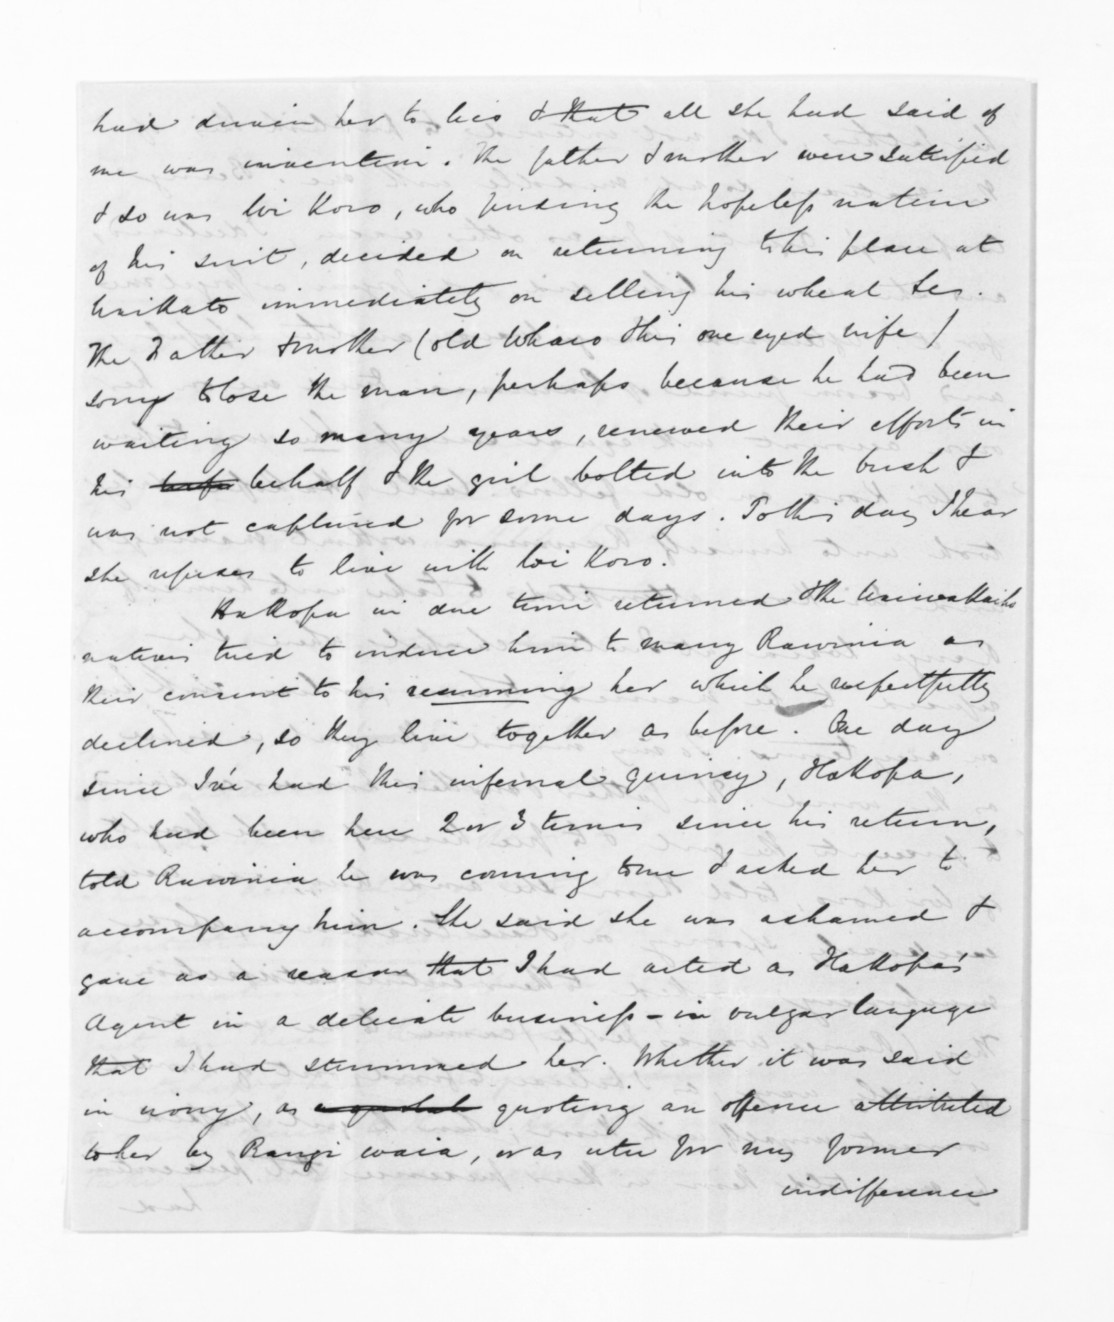 had driven her to lies & that all she had said of
me was invention. The father & mother were satisfied
& so was Wi Koro, who finding the hopeless nature
of his suit, decided on returning to his place at
Waikato immediately on selling his wheat &c.
The Father & mother (old Wharo & his one eyed wife)
sorry to lose the man, perhaps because he had been
waiting so many years, renewed their efforts in
his behalf & the girl bolted into the bush &
was not captured for some days. To this day I hear
she refuses to live with Wi Koro.
Hakopa in due time returned & the
natives tried to induce him to marry Rawinia as
their consent to his resuming her which he respectfully
declined, so they live together as before. One day
since I've had this infernal quincy, Hakopa,
who had been here 2 or 3 times since his return,
told Rawinia he was coming to me & asked her to
accompany him. She said she was ashamed &
gave as a reason that I had acted as Hakopa's
Agent in a delicate business - in vulgar language
that I had strummed her. Whether it was said
in irony, as quoting an offence attributed
to her by Rangi waia, or as utu for my former
indifference